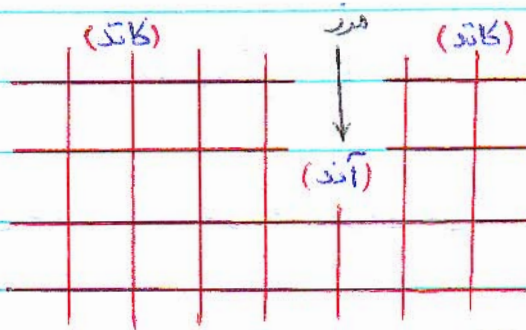 (کاتد) مرز (کاتد)
(آند)